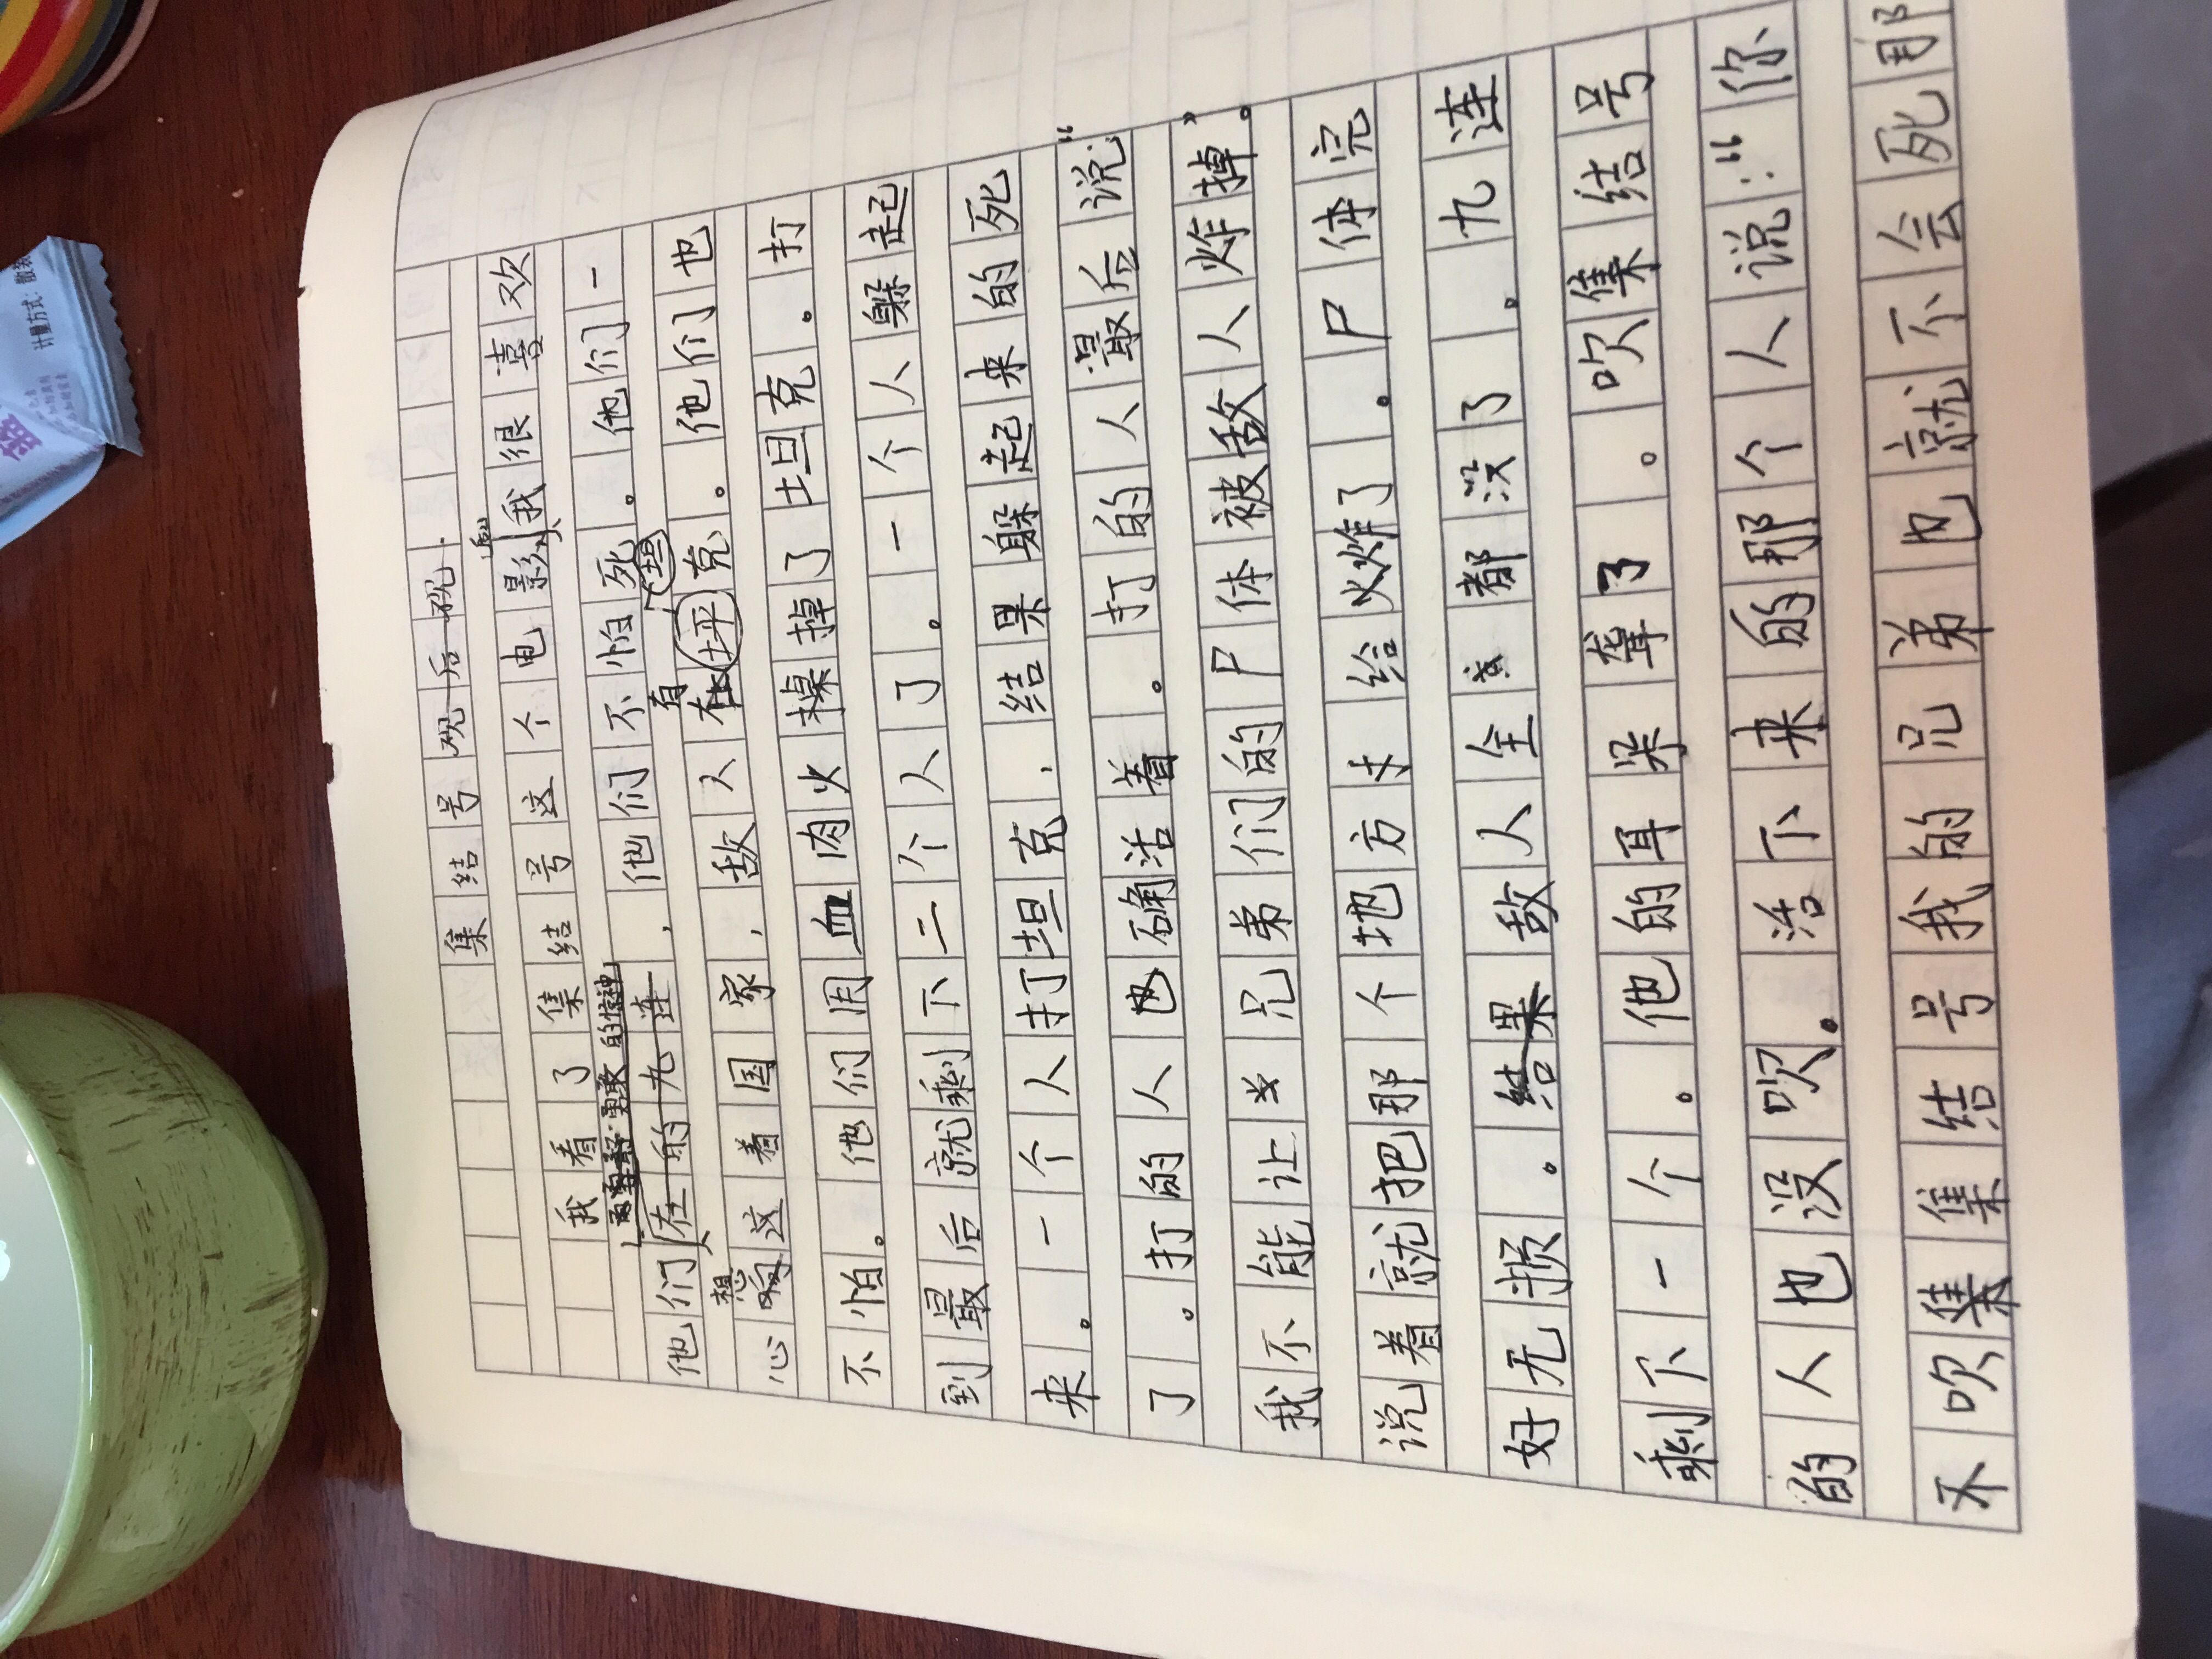 集结号观后祝.
我看了集结号这个电影后,我很喜欢
勇敢的精神
他们在的九连,他们不怕死。他们一
想 有 坦
心响这着国家,敌人在坪克。他们也
不怕。他们用血肉火掉掉了坦克。打
到最后就剩下二个人了。一个人躲起
来。一个人打坦克,结果躲起来的死
了。打的人也确活着。打的人最后说:“
我不能让兄弟们的尸体被敌人炸掉”。
说着就把那个地方给火炸了。尸体完
好无损。结果敌人全都没了。九连
剩下一个。他的耳朵聋了。吹集结号
的人也没吹。活下来的那个人说:“你
不吹集集结号我的兄弟也就不会死那
计量方式:散装